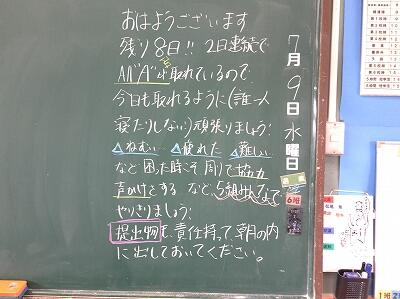 おはようございます
残り8日!! 2日連続で
AばAが取れているので
今日も取れるように(誰一人
寝たりしない)頑張りましょう!
△ねむい △疲れた △難しい
など困った時こそ周りで協力
声かけをするなど、5組みんなで
やりきりましょう!
提出物も、責任持って朝の内
に出しておいてください。
7月9日水曜日
6班